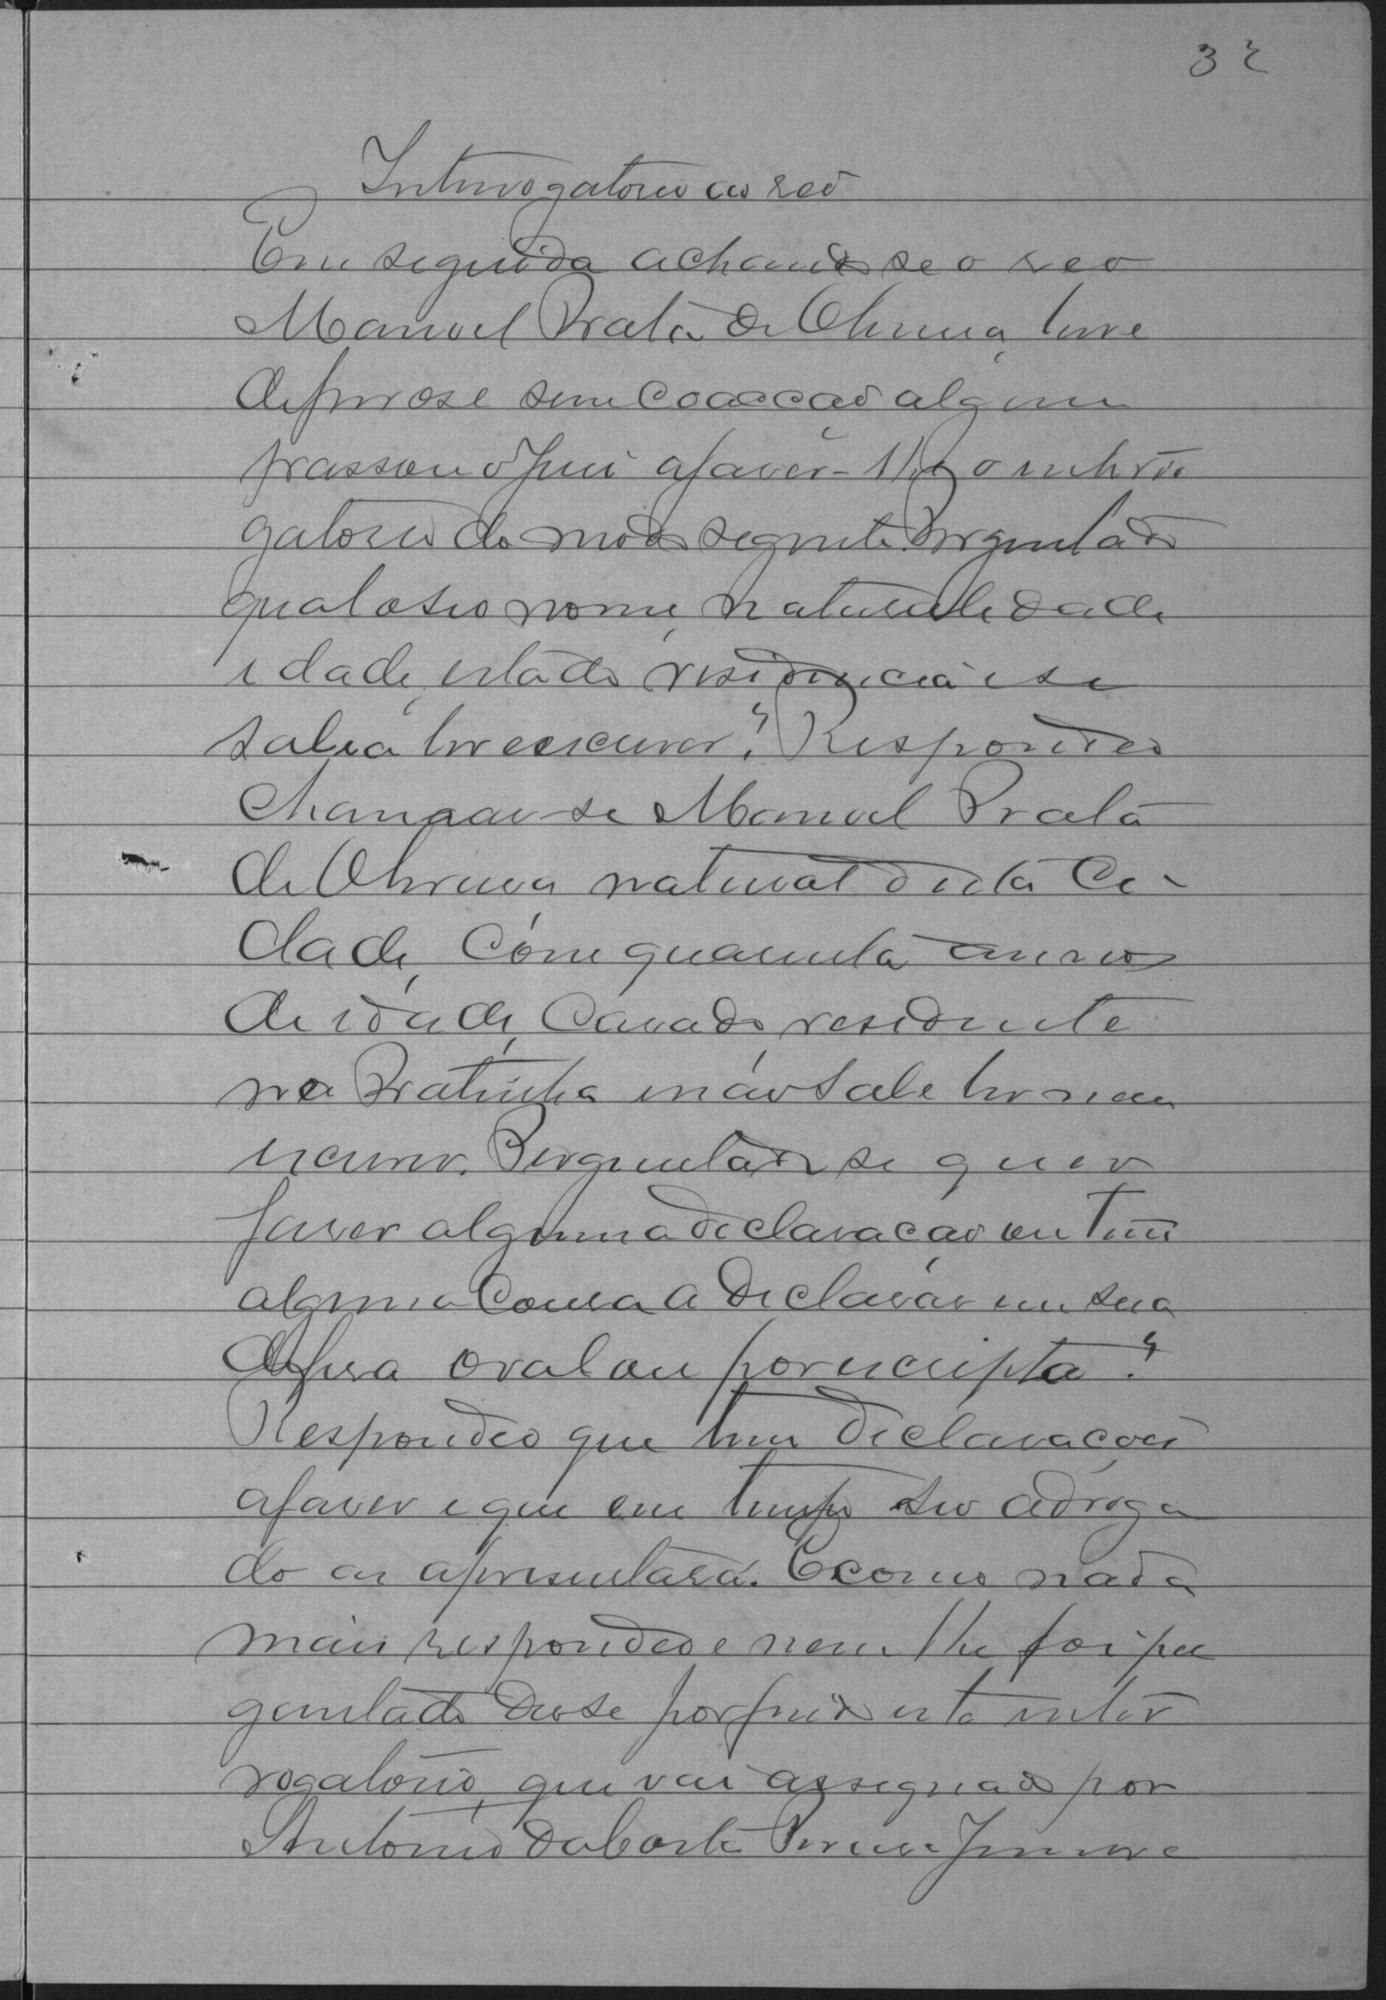 32
Interrogatorio ao reo
Em seguida achando se o reo
Manoel Prata de Oliveira, livre
de ferros e sem coacção alguma
passou o Juiz a fazer-lhe o inter
gatorio do modo seguinte. Perguntado
qual o seo nome, naturalidade
idade, estado residencia e se
sabia ler e escrever? Respondeo
chamar-se Manoel Prata
de Oliveira natural desta Ci-
dade, com quarenta annos
de idade, casado, residente
na Pratinha e não sabe ler nem
escrever. Perguntado se quer
fazer alguma declaração ou tem
alguma cousa a declarar em sua
defesa oral ou por escripta?
Respondeo que tem declarações
a fazer e que em tempo seo advoga
do as apresentará. E como nada
mais respondeo e nem lhe foi per
guntado deo se por findo este inter
rogatorio, que vai assignado por
Antonio da Costa Pereira